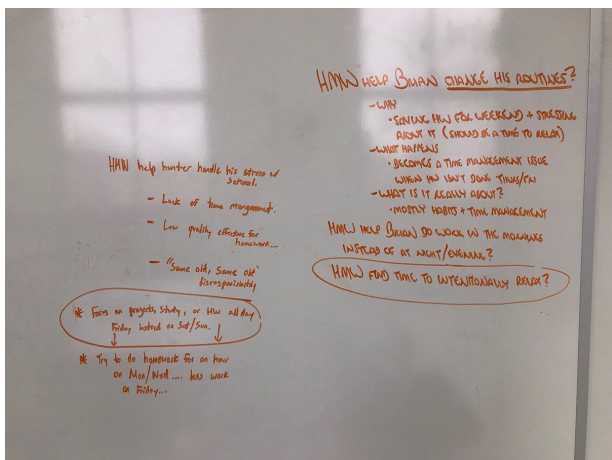 HMW help hunter handle his stress w/
school.
- Lack of time management.
- Low quality effective for
homework...
- "Same old, Same old"
* Focus on projects, Study, or HW all day
Friday instead on Sat/Sun.
* Try to do homework for an hour
on Mon/Wed.... less work
on Friday...
HMW HELP BRIAN CHANGE HIS ROUTINES?
- WHY
• SAVING HW FOR WEEKEND + STRESSING
ABOUT IT (SHOULD BE A TIME TO RELAX)
- WHAT HAPPENS
• BECOMES A TIME MANAGEMENT ISSUE
WHEN HW ISN'T DONE THURS/FRI
- WHAT IS IT REALLY ABOUT?
• MOSTLY HABITS + TIME MANAGEMENT
HMW HELP BRIAN DO WORK IN THE MORNING
INSTEAD OF AT NIGHT/EVENING?
HMW FIND TIME TO INTENTIONALLY RELAX?